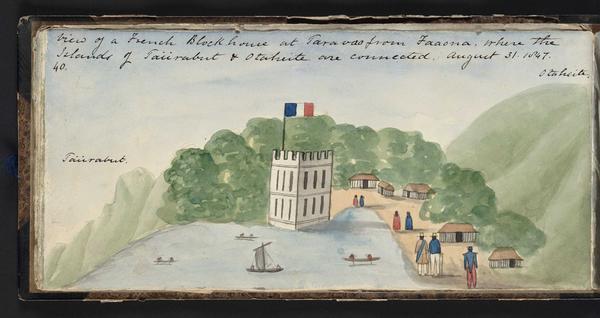 View of a French Blockhouse at Taravao from Faaona. where the
Islands of Taiirabut & Otaheite are connected. August 31. 1847.
40.
Otaheite.
Taiirabut.